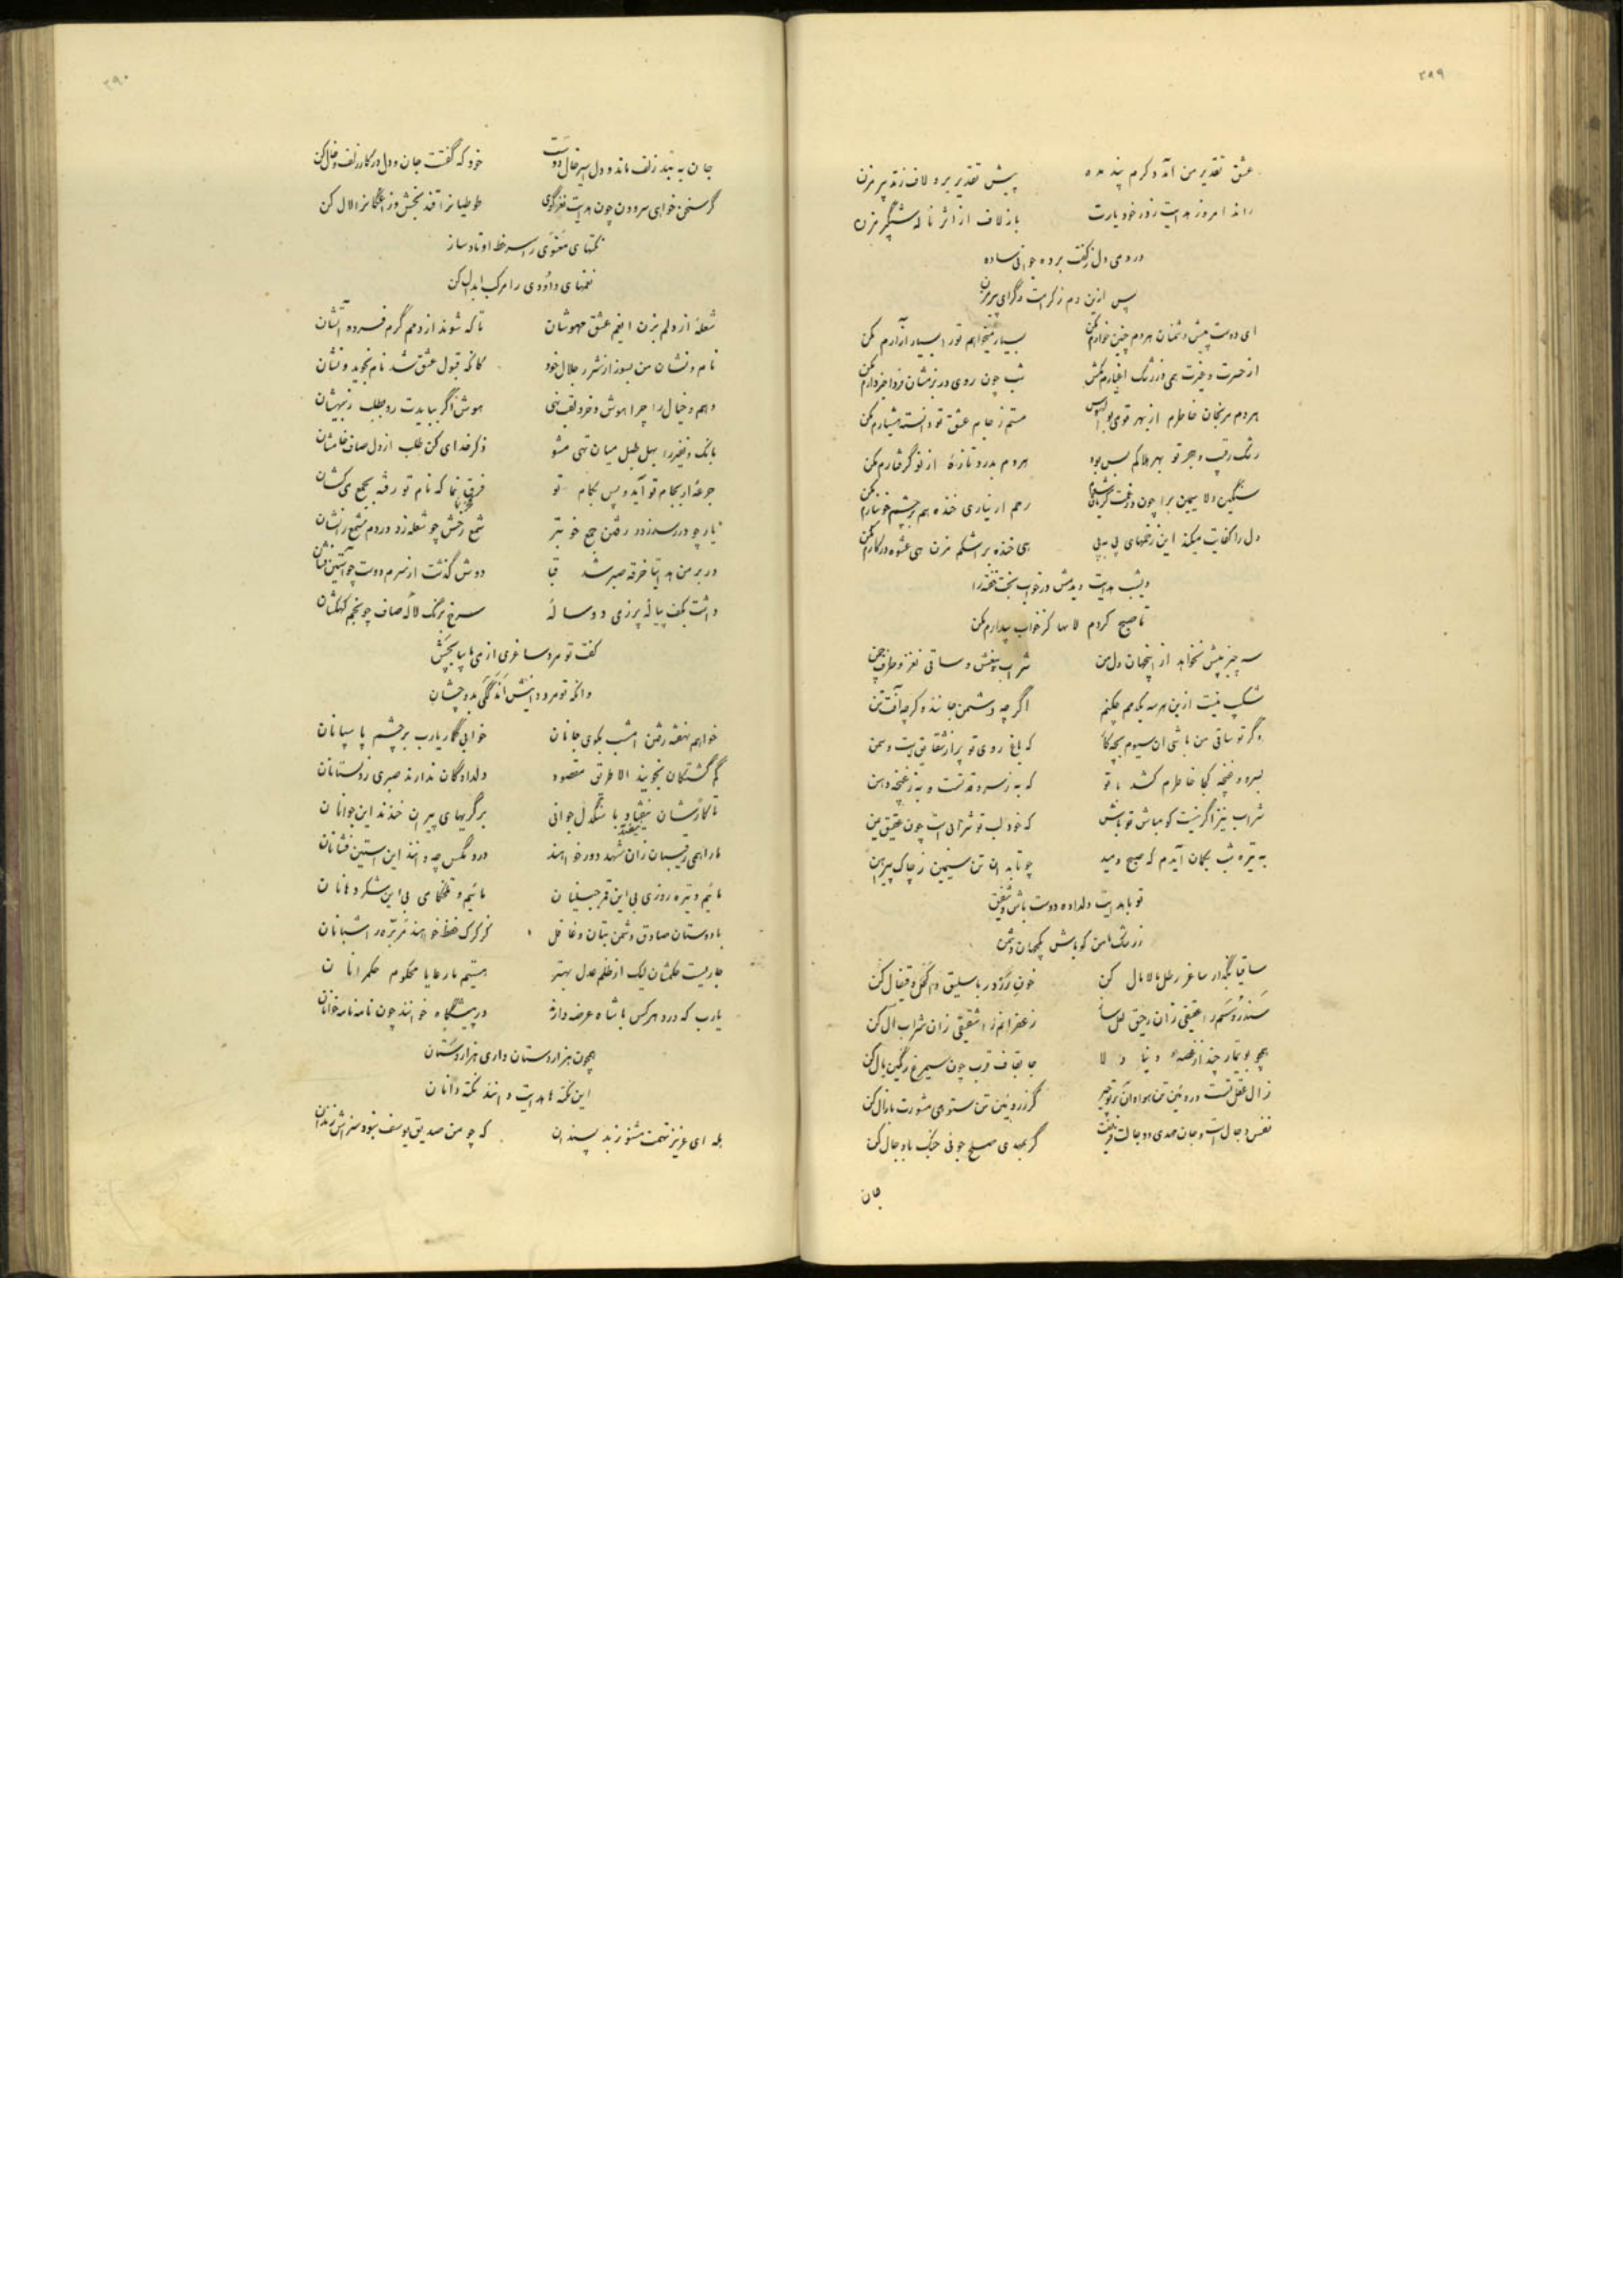 ۳۸۹
عشق تقدیر من آمد و کرم پند مده پیش تقدیر برو لاف ز تدبیر مزن
راند امروز هدایت ز در خود یارت باز لاف از اثر نالهٔ شبگیر مزن
درومی دل ز کفت برده جوانی ساده
پس ازین دم ز کرامت دگر ای پیر مزن
ای دوست پیش دشمنان هردم چنین خوارم مکن بسیار میخواهم تو را بسیار آزارم مکن
از حسرت و غیرت همی در رشک اغیارم مکش شب چون روی در بزمشان فردا خبردارم مکن
هردم مرنجان خاطرم از بهر قومی بوالهوس مستم ز جام عشق تو دانسته هشیارم مکن
رشک رقیب و هجر تو بهر هلاکم بس بود هردم بدرد تازهٔ از نو گرفتارم مکن
سنگین دلا سیمین برا چون در غمت گریان شوم رحم ار نیاری خنده هم بر چشم خونبارم مکن
دل را کفایت میکند این زخمهای پی به پی هی خنده بر اشکم مزن هی عشوه در کارم مکن
دیشب هدایت دیدمش در خواب بخت خفته را
تا صبح کردم لابها کز خواب بیدارم مکن
سه چیز بیش نخواهد از اینجهان دل من شراب بیغش و ساقی نغز و طرف چمن
شکیب نیست ازین هرسه یکدمم چکنم اگرچه دشمن جانند و گرچه آفت تن
وگر تو ساقی من باشی آن سیوم بچه کار که باغ روی تو پر از شقایق است و سمن
بسرو و غنچه کجا خاطرم کشد با تو که به ز سرو قدتست و به ز غنچه دهن
شراب نیز اگر نیست کو مباش تو باش که خود لب تو شرابی است چون عقیق یمن
به تیره شب بگمان آیدم که صبح دمید چو تابد آن تن سیمین ز چاک پیرهن
تو با هدایت دلداده دوست باش و شفیق
ز رشک با من گو باش یکجهان دشمن
ساقیا بگذار ساغر رطل مالامال کن خون رز در باسلیق و اکحل و قیفال کن
سندروسم را عقیقی زان رحیق لعل سا زعفرانم را شقیقی زان شراب آل کن
همچو بوتیمار چند از غصه دنیا و لا جا بقاف قرب چون سیمرغ رنگین بال کن
زال عقل تست و روئین تن هوا و آن گر روئین تن ستوهی مشورت با زال کن
نفس دجال است و جان مهدی و دجالت فریفت گر بمهدی صلح جوئی جنگ با دجال کن
جان
۳۹۰
جان به بند زلف ماند و دل اسیر خال دوست خود که گفتت جان و دل در کار زلف و خال کن
گر سخن خواهی سرودن چون هدایت نغز گوی طوطیانرا قند بخش و زاغکانرا لال کن
نکتهای مثنوی را سرخط اوتاد ساز
نغمهای داودی را مرکب ابدال کن
شعلهٔ از دلم بزن ای غم عشق مهوشان تا که شوند از دمم گرم فسرده آتشان
نام و نشان من بسوز از شرر جلال خود کانکه قبول عشق شد نام نجوید و نشان
وهم و خیال را چرا هوش و خرد لقب نهی هوش اگر ببایدت رو بطلب ز بیهشان
بانگ و نفیر را بهل طبل میان تهی مشو ذکر خدای کن طلب از دل صاف خامشان
جرعهٔ از بجام تو آید و پس بکام تو فرق نما که نام تو رفته بجمع میکشان
یار چو در رسد ز در رفتن جمع خوبتر شمع رخش چو شعله زد در دم شمع را نشان
در بر من هدایتا خرقه صبر شد قبا دوش گذشت از سرم دوست چو آستین فشان
داشت بکف پیالهٔ پر ز می دوسالهٔ سرخ برنگ لالهٔ صاف چو نجم کهکشان
گفت تو مرد ساغری از می ما بیا بچش
وانکه تو مرد دانیش اندککی بدو چشان
خواهم نهفته رفتن امشب بکوی جانان خوابی گمار یارب بر چشم پاسبانان
گم گشتگان نجویند الا طریق مقصود دلدادگان ندارند صبری ز دلستانان
تا کارشان نیفتاد با سنگدل جوانی بر گریهای پیران خندند این جوانان
ما را همی رقیبان زان شهد دور خواهند درد مگس چه دانند این آستین فشانان
مائیم و تیره روزی بی این قمر جبینان مائیم و تلخکامی بی این شکر دهانان
با دوستان صادق دشمن بتان و غافل کز گرگ حفظ خواهند مر بره را شبانان
جاریست حکمشان لیک از ظلم عدل بهتر هستیم ما رعایا محکوم حکمرانان
یارب که درد هرکس با شاه عرضه دارند در پیشگاه خوانند چون نامه نامه خوانان
همچون هزاردستان داری هزار دستان
این نکته ها هدایت دانند نکته دانان
بله ای عزیز تهمت مشنو ز بد پسندان که چو من صدیق یوسف نبود سزاش زندان